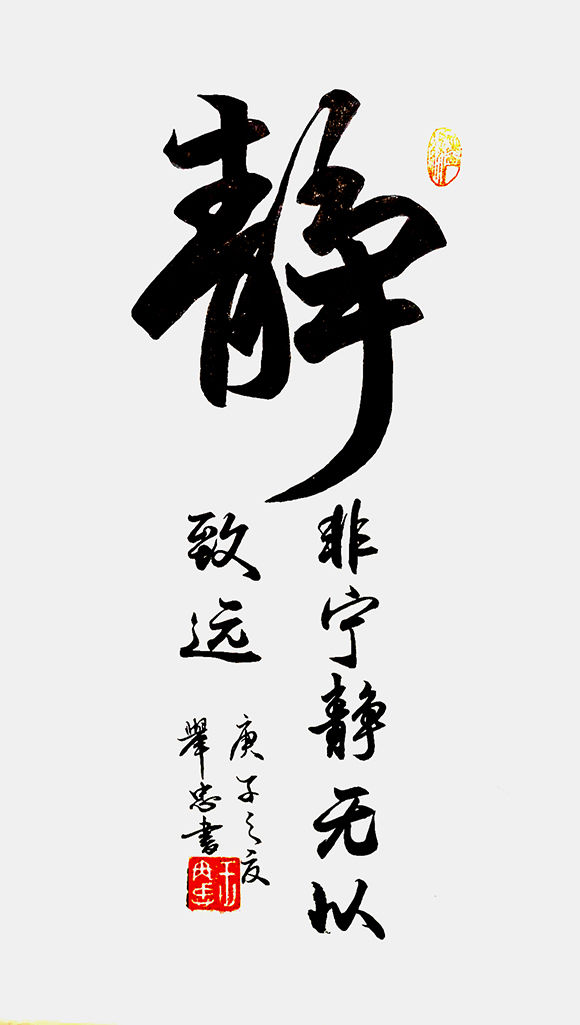 静
非宁静无以
致远
庚子之夏
举忠书